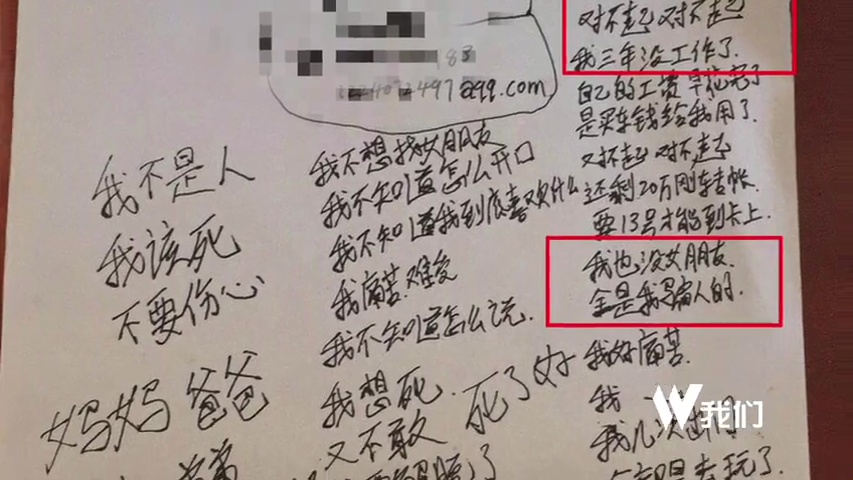 83
497@qq.com
我不是人
我该死
不要伤心
妈妈 爸爸
我不想找女朋友
我不知道怎么开口
我不知道我到底喜欢什么
我痛苦 难受
我不知道怎么说.
我想死. 死了好
又不敢
对不起 对不起
我三年没工作了.
自己的工资早花完了
是买车钱给我用了.
对不起 对不起
还剩20万刚转帐.
要13号才能到卡上.
我也没女朋友.
全是我骗人的.
我好痛苦.
我
我几次出门
W我们